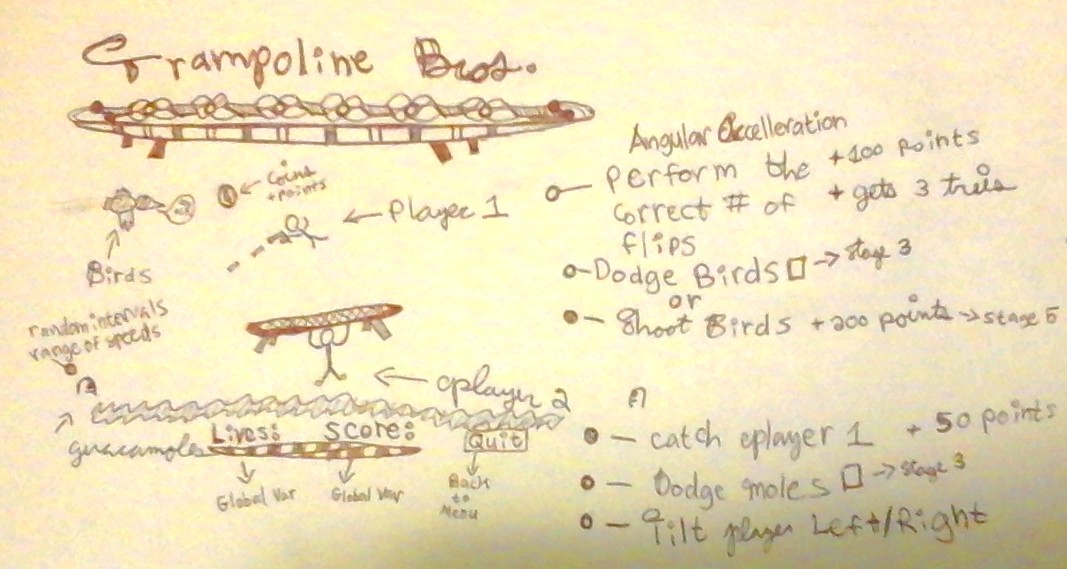 Trampoline Bros.
Coins
+points
Player 1
Birds
random intervals
range of speeds
player 2
guacamoles
Lives:
Score:
Quit
Global Var
Global Var
Back
to
Menu
Angular Accelleration
Perform the
correct # of
flips
+100 points
+ gets 3 tries
Dodge Birds → stage 3
or
Shoot Birds +200 points → stage 5
catch player 1 + 50 points
Dodge moles → stage 3
Tilt player Left/Right